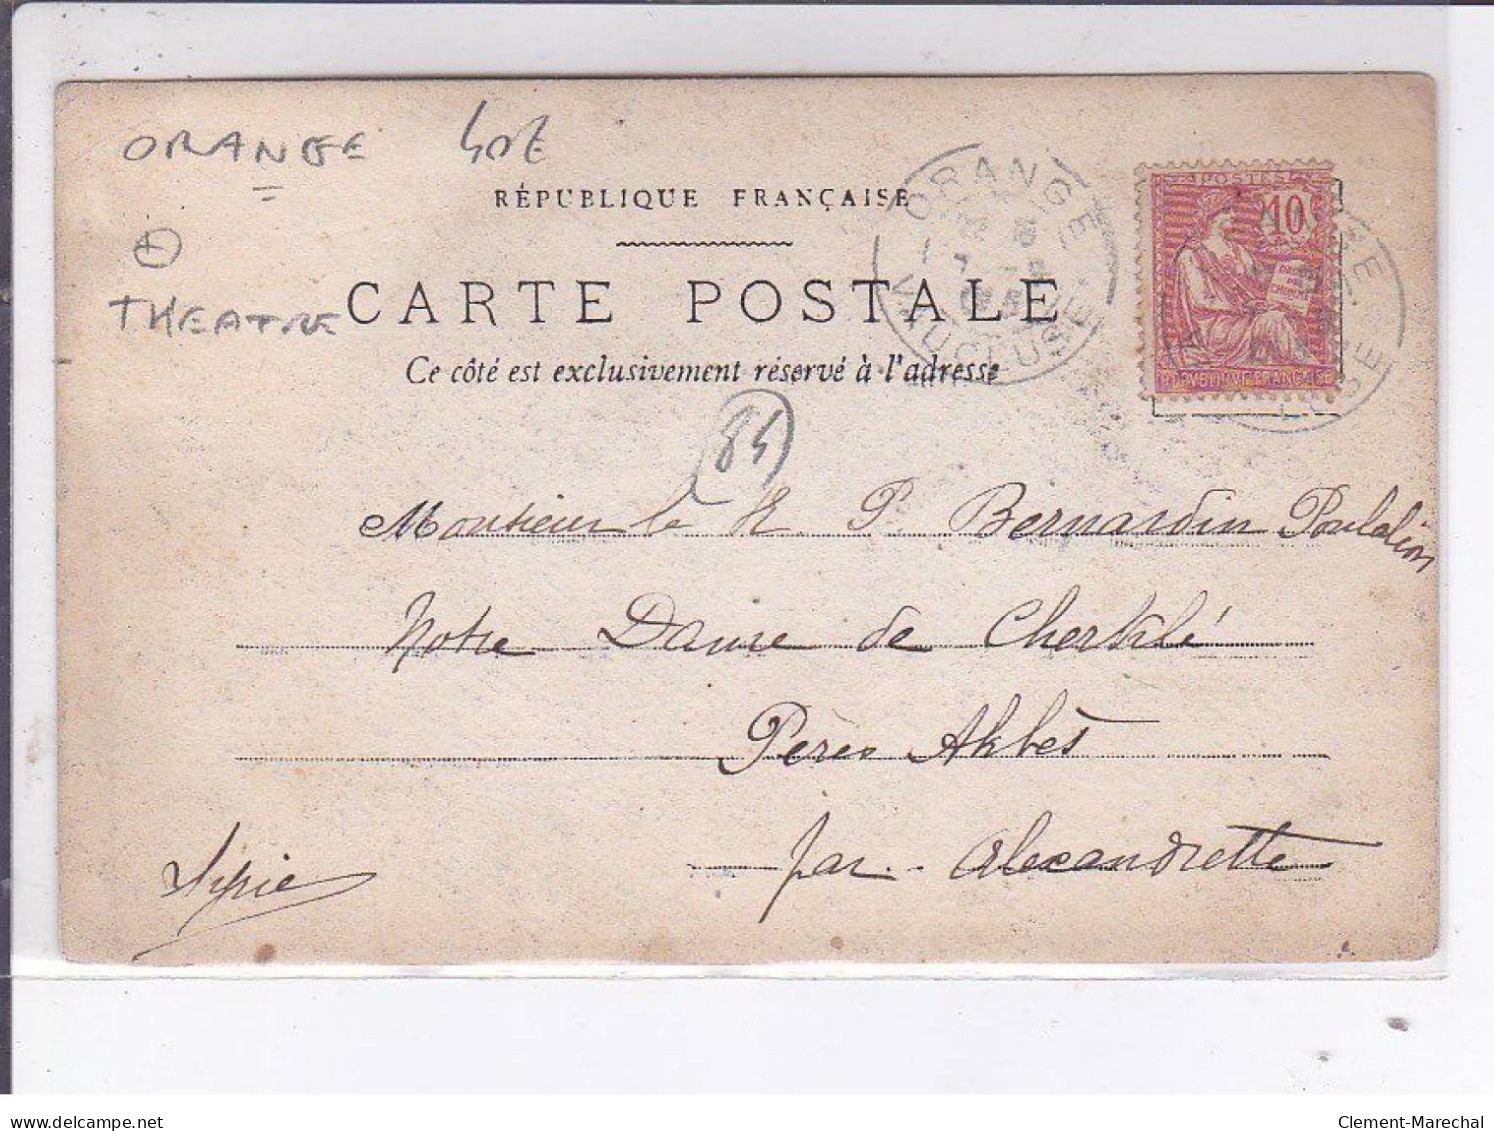 ORANGE 40E
RÉPUBLIQUE FRANÇAISE
ORANGE
VAUCLUSE
POSTES
10
RÉPUBLIQUE FRANÇAISE
THEATRE
CARTE POSTALE
Ce côté est exclusivement réservé à l'adresse
84
Monsieur le R. P. Bernardin
Notre Dame de Cheïklé
Pères Akbès
par Alexandrette
Syrie
delcampe.net
Clement-Marechal